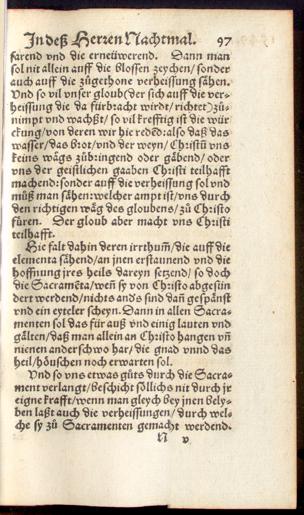 In deß Herren Nachtmal. 97
farend vnd die erneüwerend. Dann man
sol nit allein auff die blossen zeychen/ sonder
auch auff die zůgethone verheissung sähen.
Vnd so vil vnser gloub (der sich auff die ver-
heissung die da fürbracht wirdt/ richtet) zů-
nimpt vnd wachßt/ so vil krefftig ist die wür
ckung/ von deren wir hie redẽd: also daß das
wasser/ das brot/ vnd der weyn/ Christũ vns
keins wägs zůbringend oder gäbend/ oder
vns der geistlichen gaaben Christi teilhafft
machend: sonder auff die verheissung sol vnd
můß man sähen: welcher ampt ist/ vns durch
den richtigen wäg des gloubens/ zů Christo
fůren. Der gloub aber macht vns Christi
teilhafft.
Hie falt dahin deren irrthum̃/ die auff die
elementa sähend/ an jnen erstaunend vnd die
hoffnung jres heils dareyn setzend/ so doch
die Sacramẽta/ weñ sy von Christo abgesün
dert werdend/ nichts anders sind dañ gespänst
vnd ein eyteler scheyn. Dann in allen Sacra-
menten sol das für auß vnd einig lauten vnd
gälten/ daß man allein an Christo hangen vñ
nienen anderschwo har/ die gnad vnnd das
heil/ höuschen noch erwarten sol.
Vnd so vns etwas gůts durch die Sacra-
ment verlangt/ beschicht söllichs nit durch jr
eigne krafft/ wenn man gleych bey jnen bely-
ben laßt auch die verheissungen/ durch wel-
che sy zů Sacramenten gemacht werdend.
N v